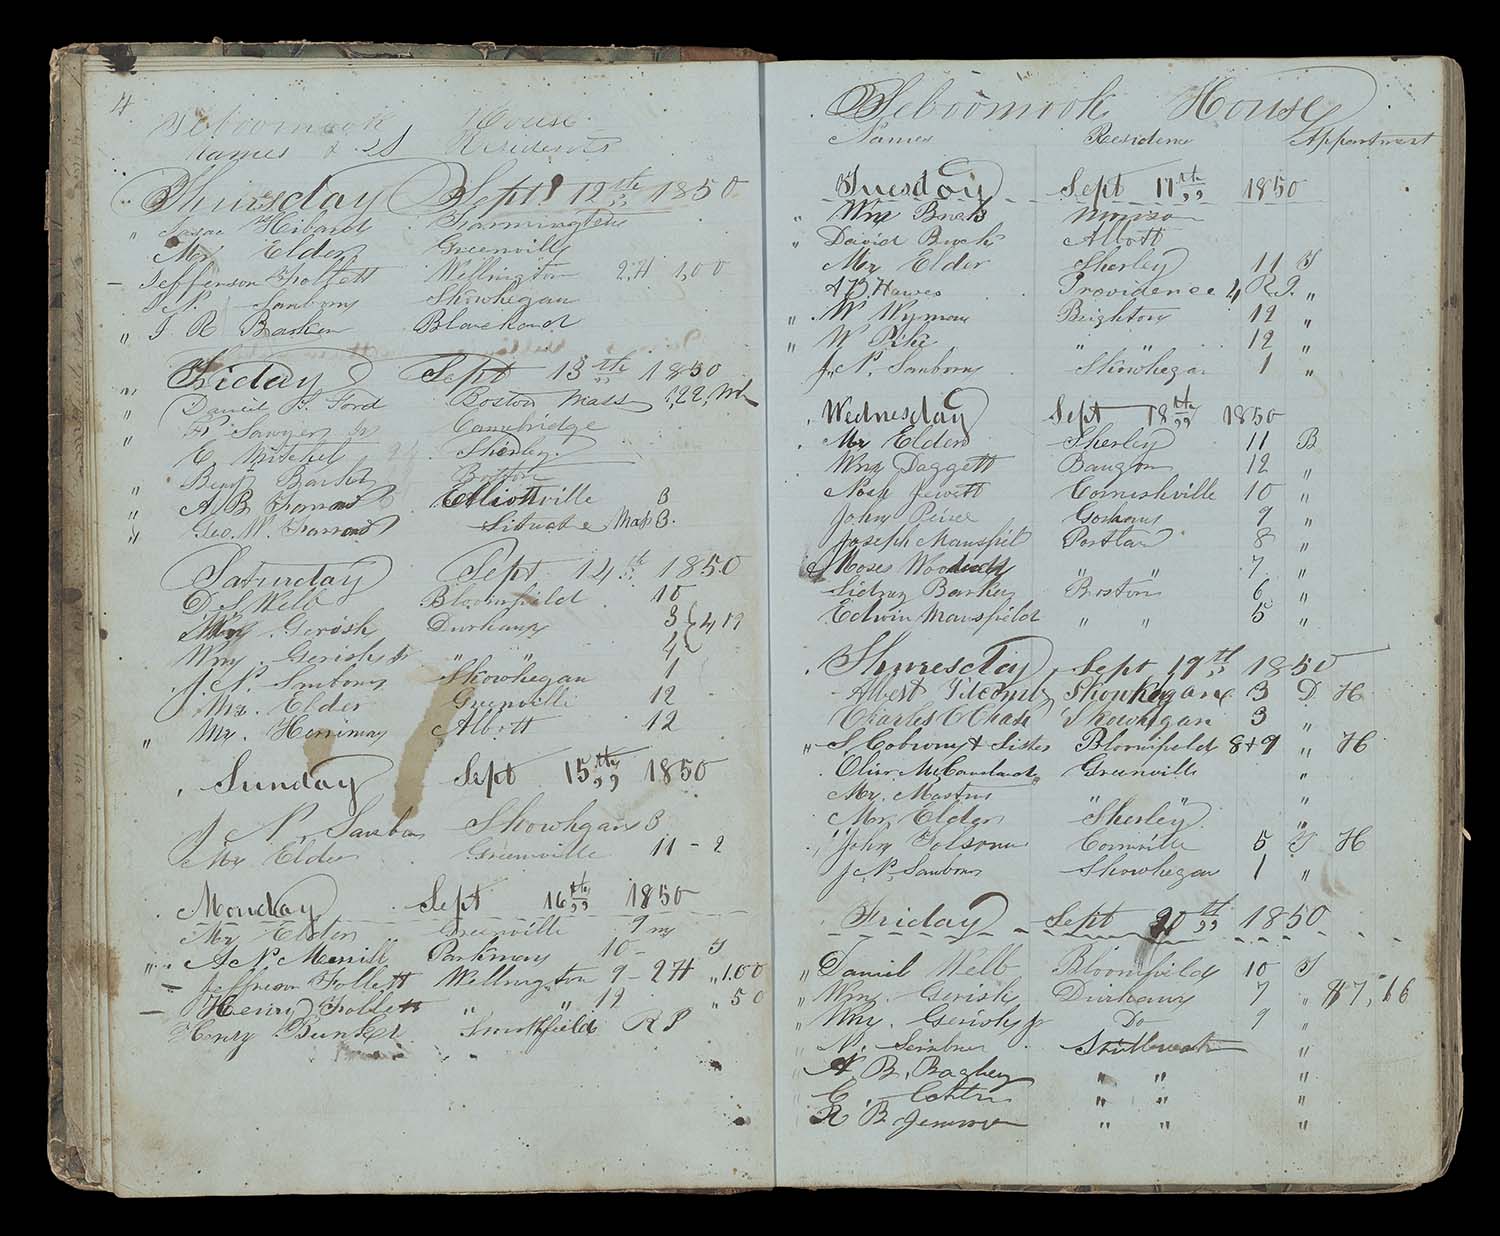 4
Seboomook House
Names & Residents
Thursday Sept 12th 1850
" Isaac Hibard Farmington
Mr Elder Greenville
- Jefferson Follett Wellington 2,H 1,00
J N. Sanborn Skowhegan
" J R Barker Blanchard
Friday Sept 13th 1850
" Daniel F. Ford Boston Mass
" F. Sawyer Jr Cambridge
" E Mitchel Shirley.
Benj Barker Boston
" A B Farrar Elliottville 3
" Geo. W. Farrar Situate Mass 3.
Saturday Sept 14th 1850
D S Webb Bloomfield 10
Wm Gerish Durham 3 } 4 12
Wm Gerish Jr " " 4
J. N. Sanborn Skowhegan 1
Mr. Elder Greenville 12
" Mr. Herriman Abbott 12
Sunday Sept 15th 1850
J N. Sanborn Skowhegan 3
Mr Elder Greenville 11 - 2
Monday Sept 16th 1850
Mr Elder Greenville 9
" A N Merrill Parkman 10 - T
- Jefferson Follett Wellington 9 - 2 H " 1.00
- Henry Follett " " 12 " 50
Henry Bunker Smithfield R P
Seboomook House
Names Residence Appartment
Tuesday Sept 17th 1850
" Wm Buck Monson
" David Buck Abbott
Mr Elder Sherley 11 T
A B Hawes Providence 4 R I. "
" W Wyman Brighton 12 "
" W Pike " " 12 "
J. N. Sanborn Skowhegan 1 "
Wednesday Sept 18th 1850
Mr Elder Sherley 11 B
Wm Daggett Bangor 12 "
Noah Jewett Cornishville 10 "
John Peirce Gorham 9 "
Joseph Mansfield Portlan 8 "
Moses Woodward " " 7 "
Sidney Barker Boston 6 "
Edwin Mansfield " " 5 "
Thuresday, Sept 19th 1850
Albert Titcomb Skowhegan 3 D H
Charles C Chase Skowhegan 3 "
" S Coburn & Sister Bloomfield 8 & 9 " H
Oliver Greenville "
Mr. " "
Mr Elder Sherley "
" John Folsom Cornville 5 T H
J. N. Sanborn Skowhegan 1 "
Friday Sept 20th 1850
" Daniel Webb Bloomfield 10 T
" Wm. Gerish Durham 7 " $7,16
" Wm. Gerish Jr Do 9 "
N. Stillwater "
A. B. Bagley " " "
C. " " "
R B " " "